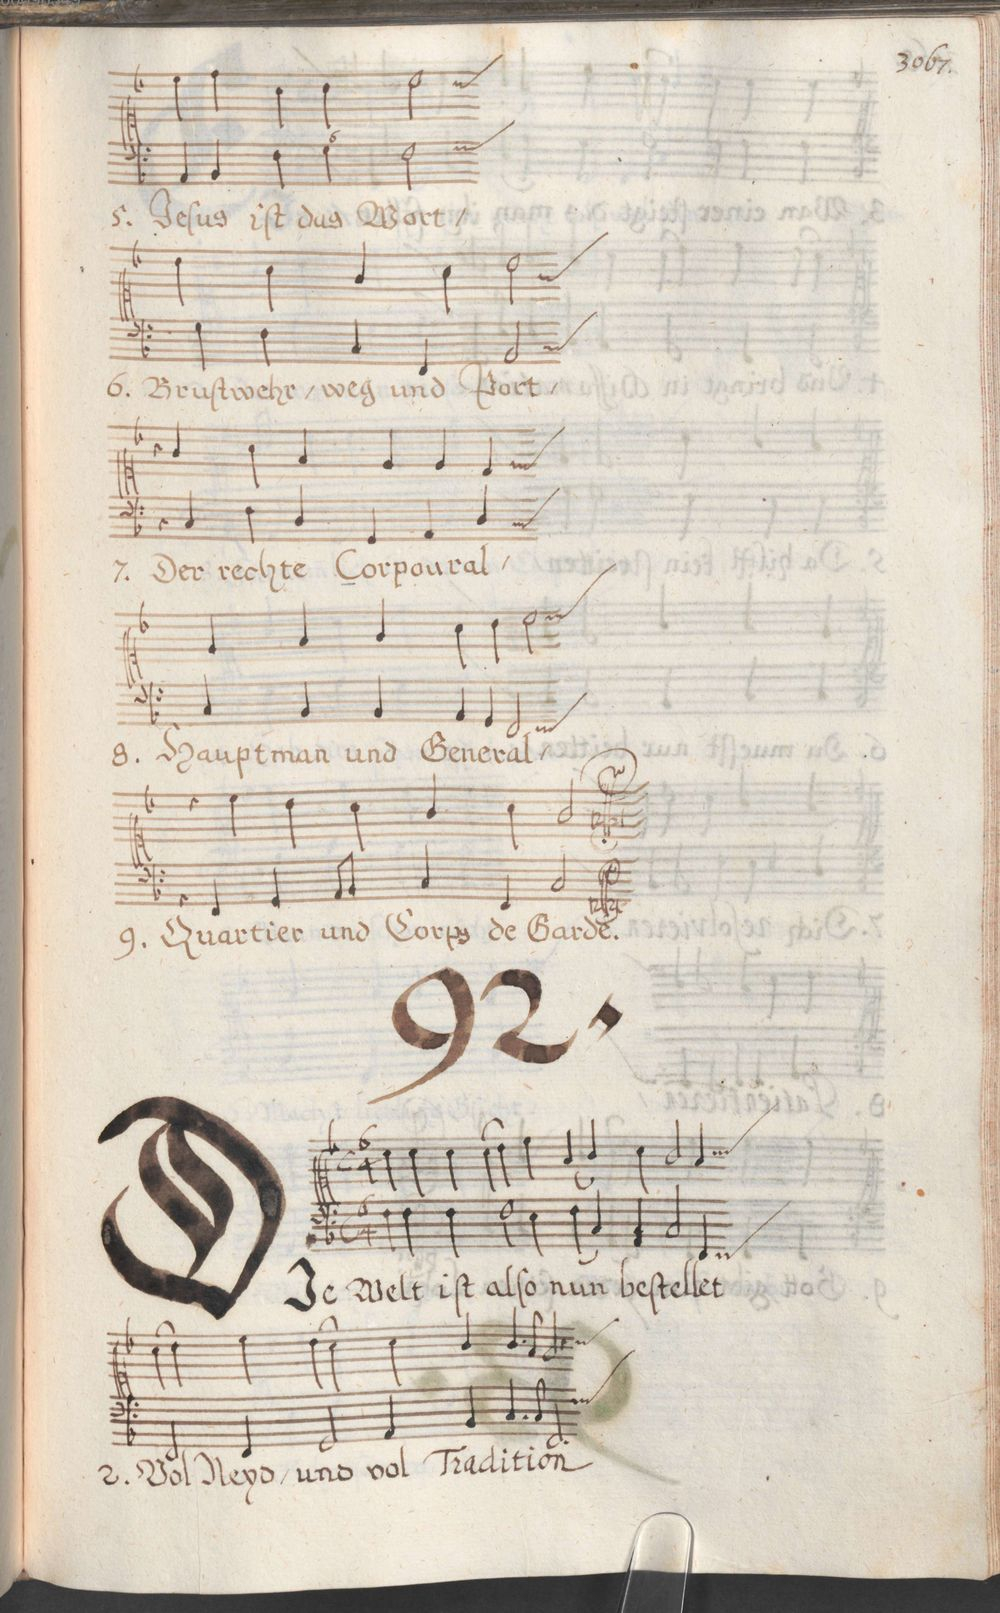 3067.
5. Jesus ist das Wort /
6. Brustwehr / weg und Port /
7. Der rechte Corpoural /
8. Hauptman und General /
9. Quartier und Corps de Garde.
92.
DIe Welt ist also nun bestellet
2. Vol Neyd / und vol Tradition